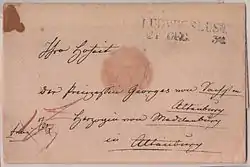 LUDWIGSLUST
21 DEC
Ihro Hoheit
Der Prinzessin Georges von
Altenburg
Herzogin von Mecklenburg
in
Altenburg